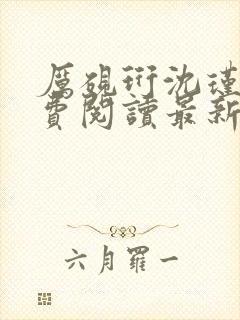 厲硯衍沈瑾
費閱讀最新
六月羅一